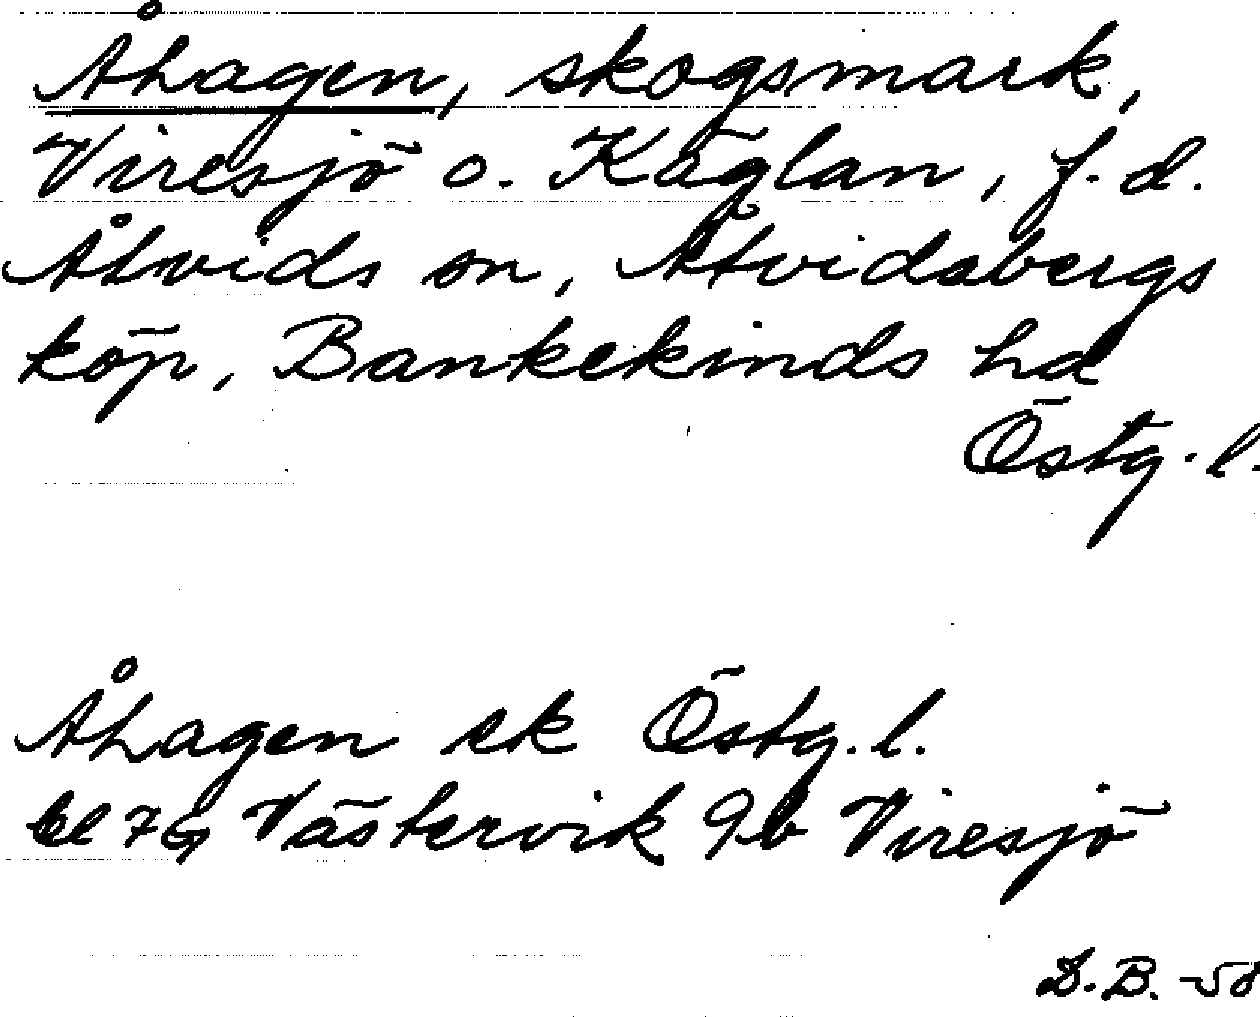 Åhagen, skogsmark,
Viresjö o. Käglan, f.d.
Åtvids sn, Åtvidabergs
köp, Bankekinds hd
Östg. l.
Åhagen ek Östg. l.
bl 76 Västervik 9b Viresjö
D.B. -58